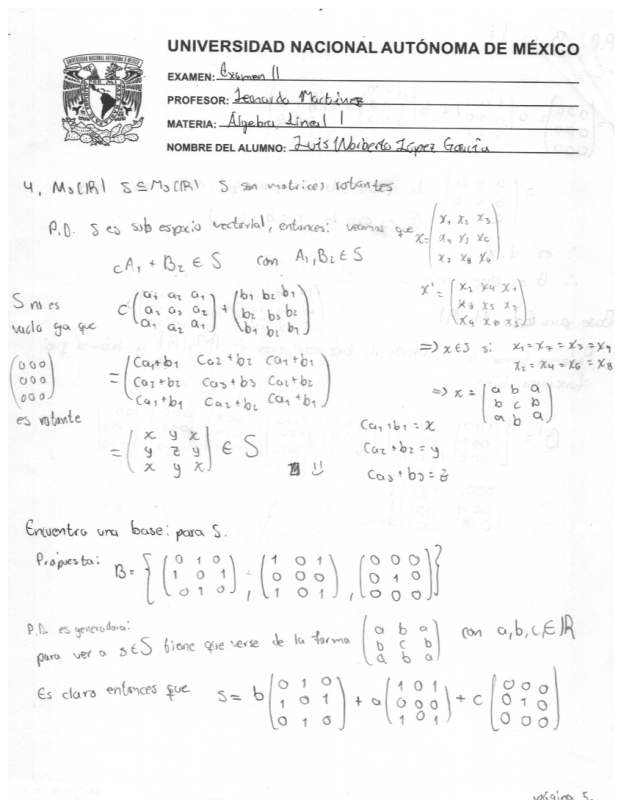 UNIVERSIDAD NACIONAL AUTÓNOMA DE MÉXICO
EXAMEN: Examen II
PROFESOR: Leonardo Martínez
MATERIA: Álgebra Lineal I
NOMBRE DEL ALUMNO: Luis Norberto López García
4. M₃(ℝ) S ⊆ M₃(ℝ) S son matrices rotantes
P.D. S es sub espacio vectorial, entonces: veamos que x = (x₁ x₂ x₃
x₄ x₅ x₆
x₇ x₈ x₉)
cA₁ + B₂ ∈ S con A₁, B₂ ∈ S
S no es
vacía ya que
(0 0 0
0 0 0
0 0 0)
es rotante
c(a₁ a₂ a₁
a₂ a₃ a₂
a₁ a₂ a₁) + (b₁ b₂ b₁
b₂ b₃ b₂
b₁ b₂ b₁)
= (ca₁+b₁ ca₂+b₂ ca₁+b₁
ca₂+b₂ ca₃+b₃ ca₂+b₂
ca₁+b₁ ca₂+b₂ ca₁+b₁)
= (x y x
y z y
x y x) ∈ S
x' =
⇒ x ∈ S si x₁ = x₇ = x₃ = x₉
x₂ = x₄ = x₆ = x₈
⇒ x = (a b a
b c b
a b a)
ca₁ + b₁ = x
ca₂ + b₂ = y
ca₃ + b₃ = z
Encuentra una base para S.
Propuesta: B = {(0 1 0
1 0 1
0 1 0), (1 0 1
0 0 0
1 0 1), (0 0 0
0 1 0
0 0 0)}
P.D. es generadora:
para ver a s∈S tiene que verse de la forma (a b a
b c b
a b a) con a, b, c, ∈ ℝ
Es claro entonces que s = b(0 1 0
1 0 1
0 1 0) + a(1 0 1
0 0 0
1 0 1) + c(0 0 0
0 1 0
0 0 0)
página 5